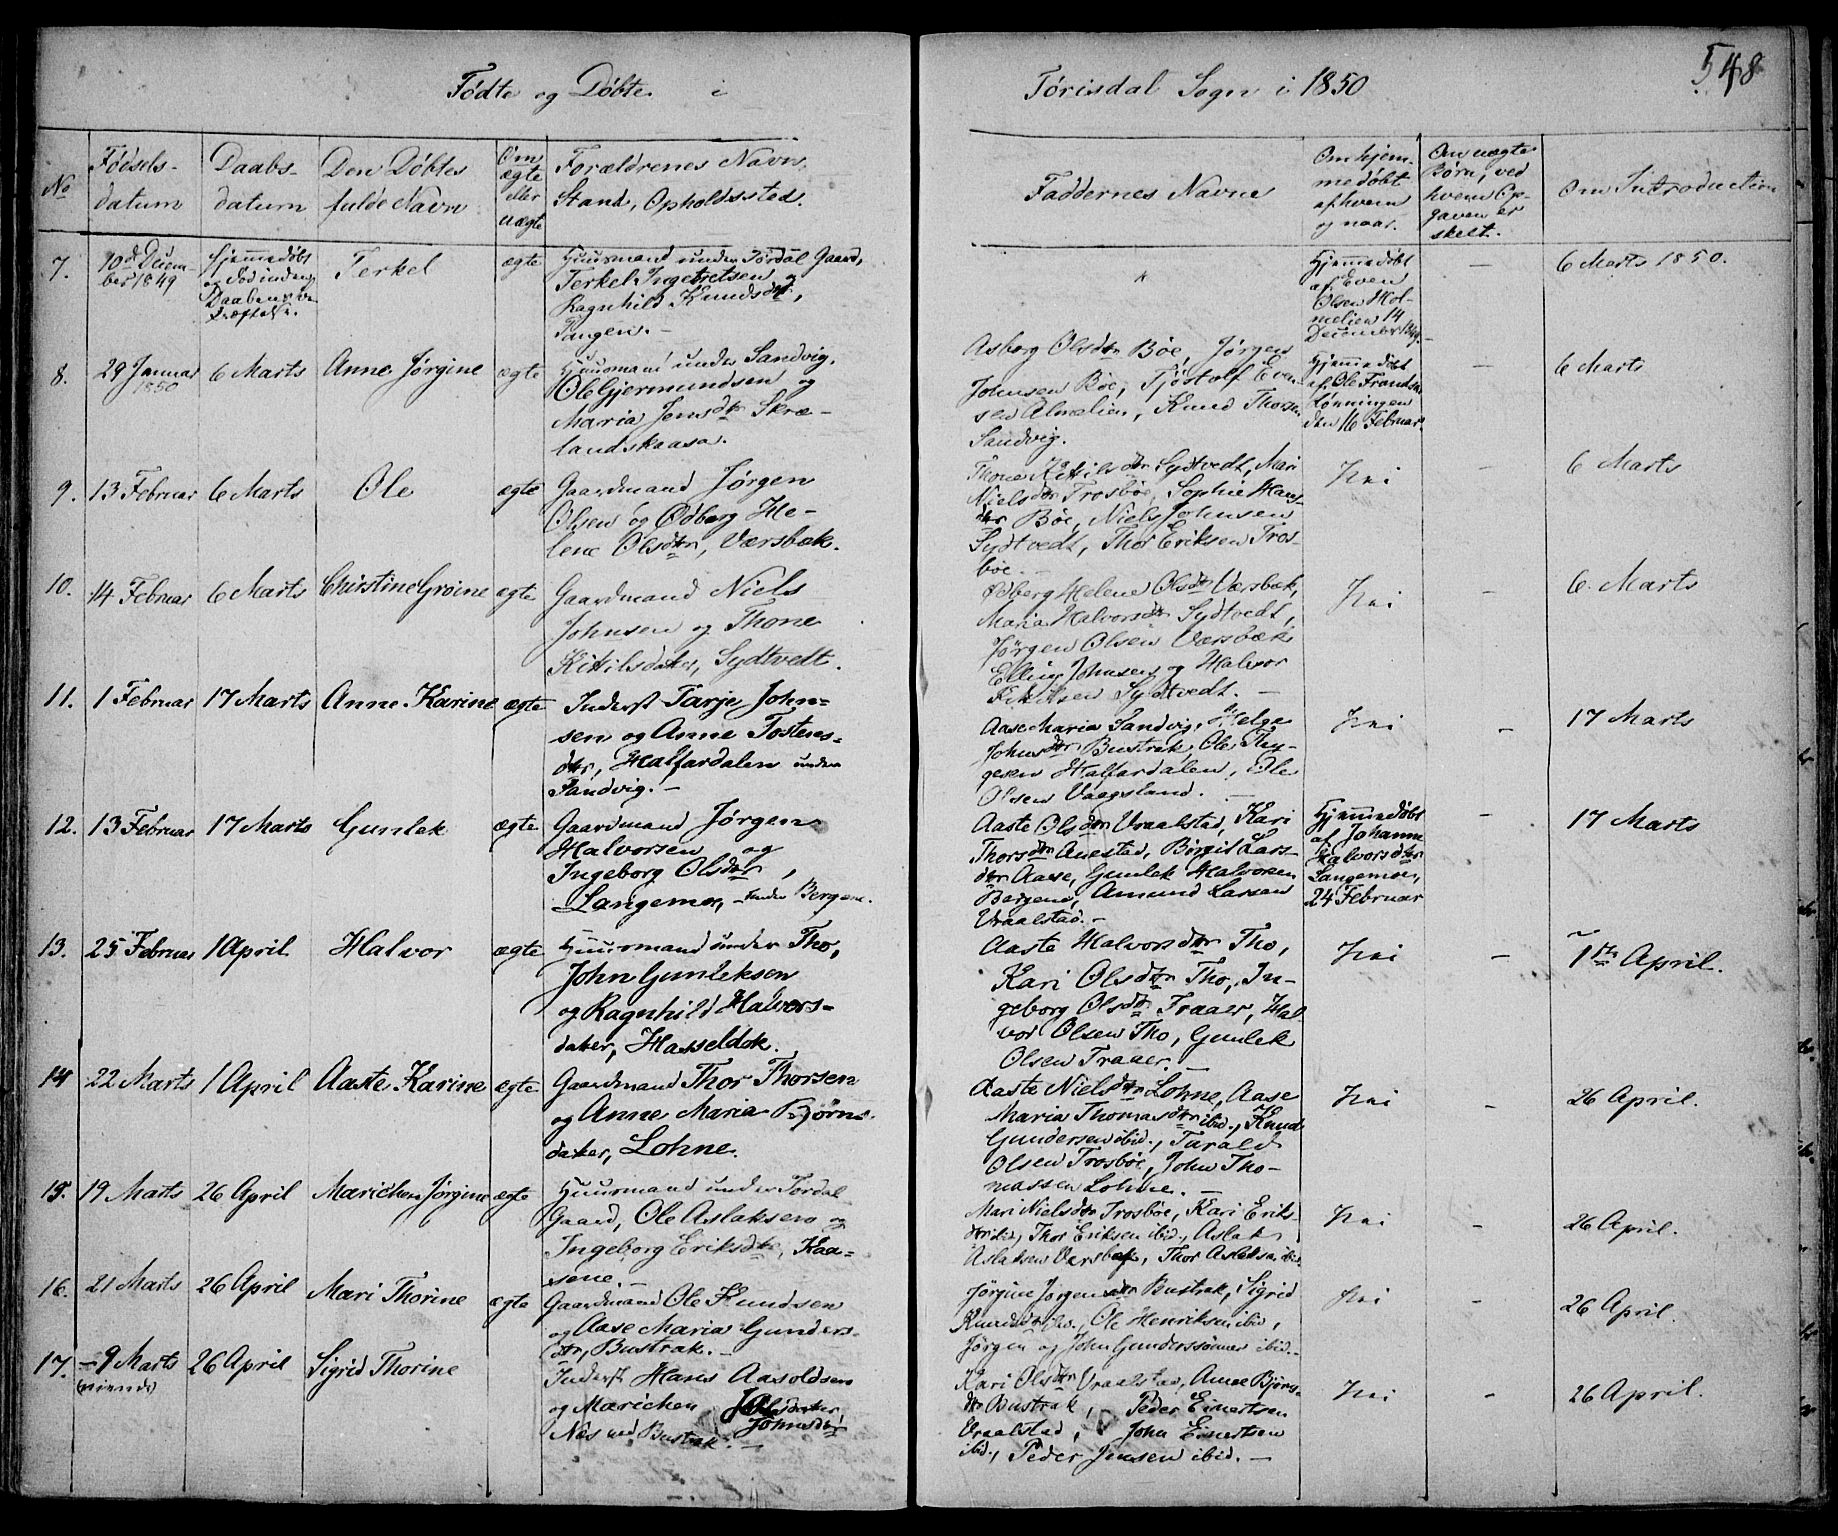 548
Fødte og Døbte i Tørisdal Sogn i 1850
No
Fødsels-
datum
Daabs-
datum
Den Døbtes
fulde Navn
Om
ægte
eller
uægte
Forældrenes Navn,
Stand, Opholdssted.
Faddernes Navne
Om hjem-
medøbt
af hvem
og naar.
Om uægte
Børn, ved
hvem Op-
gaven er
skelt.
Om Introduction
7.
10d Decem-
ber 1849
hjemmedøbt
og død inden
Daabens be-
kræftelse.
Terkel
ægte
Huusmand under Tørdal Gaard,
Terkel Ingebretsen og
Ragnhild Knudsdtr,
Tangen.
Hjemmedøbt
af Even
Olsen Hol-
melien 14
December 1849.
—
6 Marts 1850.
8.
29 Januar
1850
6 Marts
Anne Jørgine
ægte
Huusmand under Sandvig,
Ole Gjermundsen og
Maria Jensdtr Skræ-
landskaasa.
Asborg Olsdtr Bøe, Jørgen
Johnsen Bøe, Tjøstolf Even-
sen Almelien, Knud Thorsen
Sandvig.
Hjemmedøbt
af Ole Frandsen
Lønningen
den 16 Februar.
—
6 Marts
9.
13 Februar
6 Marts
Ole
ægte
Gaardmand Jørgen
Olsen og Ødberg He-
lene Olsdtr, Værsbæk.
Thone Kittilsdtr Sydtvedt, Mari
Nielsdtr Trosbøe, Sophie Hans-
dtr Bøe, Niels Johnsen
Sydtvedt, Thor Eriksen Tros-
bøe.
Nei
—
6 Marts
10.
14 Februar
6 Marts
Christine Grøine
ægte
Gaardmand Niels
Johnsen og Thone
Kittilsdatter, Sydtvedt.
Ødberg Helene Olsdtr Værsbæk,
Maria Halvorsdtr Sydtvedt,
Jørgen Olsen Værsbæk
Elling Johnsen og Halvor
Sydtvedt. —
Nei
—
6. Marts
11.
1 Februar
17 Marts
Anne Karine
ægte
Inderst Tarje John-
sen og Anne Tostens-
dtr, Halfardalen under
Sandvig. —
Aase Maria Sandvig, Helge
Johnsdtr Bustrak, Ole Thy-
gesen Halfardalen, Ole
Olsen Vaagsland. —
Nei
—
17 Marts
12.
13 Februar
17 Marts
Gunlek
ægte
Gaardmand Jørgen
Halvorsen og
Ingeborg Olsdtr,
Langemoe, under Bergene.
Aaste Olsdtr Vraalstad, Kari
Thorsdtr Anestad, Børgit Lars-
dtr Aase, Gunlek Halvorsen
Bergene, Amund Larsen
Vraalstad. —
Hjemmedøbt
af Johanne
Halvorsdtr
Langemoe,
24 Februar
—
17 Marts
13.
25 Februar
1 April
Halvor
ægte
Huusmand under Tho,
John Gunleksen
og Ragnhild Halvors-
datter, Hasseldok.
Aaste Halvorsdtr Tho,
Kari Olsdtr Tho, In-
geborg Olsdtr Traaer, Hal-
vor Olsen Tho, Gunlek
Olsen Traaer. —
Nei
—
1ste April.
14
22 Marts
1 April
Aaste Karine
ægte
Gaardmand Thor Thorsen
og Anne Maria Bjørns-
datter, Lohne.
Aaste Nielsdtr Lohne, Aase
Maria Thomasdtr ibid., Knud
Gundersen ibid., Tarald
Olsen Trosbøe, John Tho-
massen Lohne. —
Nei
—
26 April.
15.
19 Marts
26 April
Marichen Jørgine
ægte
Huusmand under Tørdal
Gaard, Ole Aslaksen og
Ingeborg Eriksdtr, Kaa-
sene. —
Mari Nielsdtr Trosbøe, Kari Eriks-
dtr ibid, Thor Eriksen ibid., Aslak
Aslaksen Værsbæk, Thor Aslaksen ibid
Nei
—
26 April.
16.
21 Marts
26 April
Mari Thorine
ægte
Gaardmand Ole Knudsen
og Aase Maria Gunders-
dtr, Bustrak. —
Jørgine Jørgensdtr Bustrak, Sigrid
Knudsdtr ibid., Ole Henriksen ibid,
Jørgen og John Gunderssønner ibid. —
Nei
—
26 April.
17.
— 9 Marts
(niende)
26 April
Sigrid Thorine
Inderst Hans Aasoldsen
og Marichen
Johnsdtr
Næs ved Bustrak. —
Kari Olsdtr Vraalstad, Anne Bjørns-
dtr Bustrak, Peder Einertsen
Vraalstad, John Einertsen
ibid., Peder Jensen ibid. —
Nei
—
26 April.